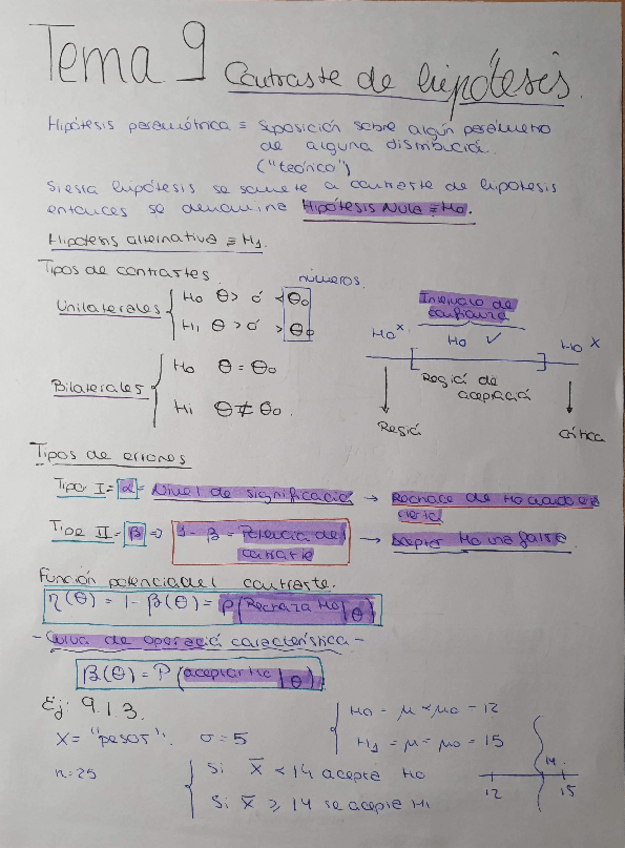 Tema 9 Contraste de hipótesis.
Hipótesis paramétrica ≡ Suposición sobre algún parámetro
de alguna distribució.
("teórico")
Si esta hipótesis se somete a contraste de hipotesis
entonces se denomina Hipótesis Nula ≡ H0.
Hipotesis alternativa ≡ H1.
Tipos de contrastes
números.
Unilaterales { H0 θ > ó < θ0
H1 θ > ó > θ0
Bilaterales { H0 θ = θ0
H1 θ ≠ θ0.
Intervalo de
confianza
H0 x H0 ✓ H0 x
Regió de
aceptació
Regió crítica
Tipos de errores
Tipo I = α = Nivel de significació → Rechace de H0 cierta
Tipo II = β => 1 - β = Potencia del contraste → Aceptar H0 falsa.
Función potencia del contraste.
η(θ) = 1 - β(θ) = P(Rechaza H0 | θ)
- Curva de operació característica -
β(θ) = P(aceptar H0 | θ)
Ej: 9.1.3.
X = "pesos". σ = 5
{ H0 = μ = μ0 = 12
H1 = μ = μ0 = 15
n = 25
{ Si X̄ < 14 acepte H0
Si X̄ ≥ 14 se acepte H1
14
12 15